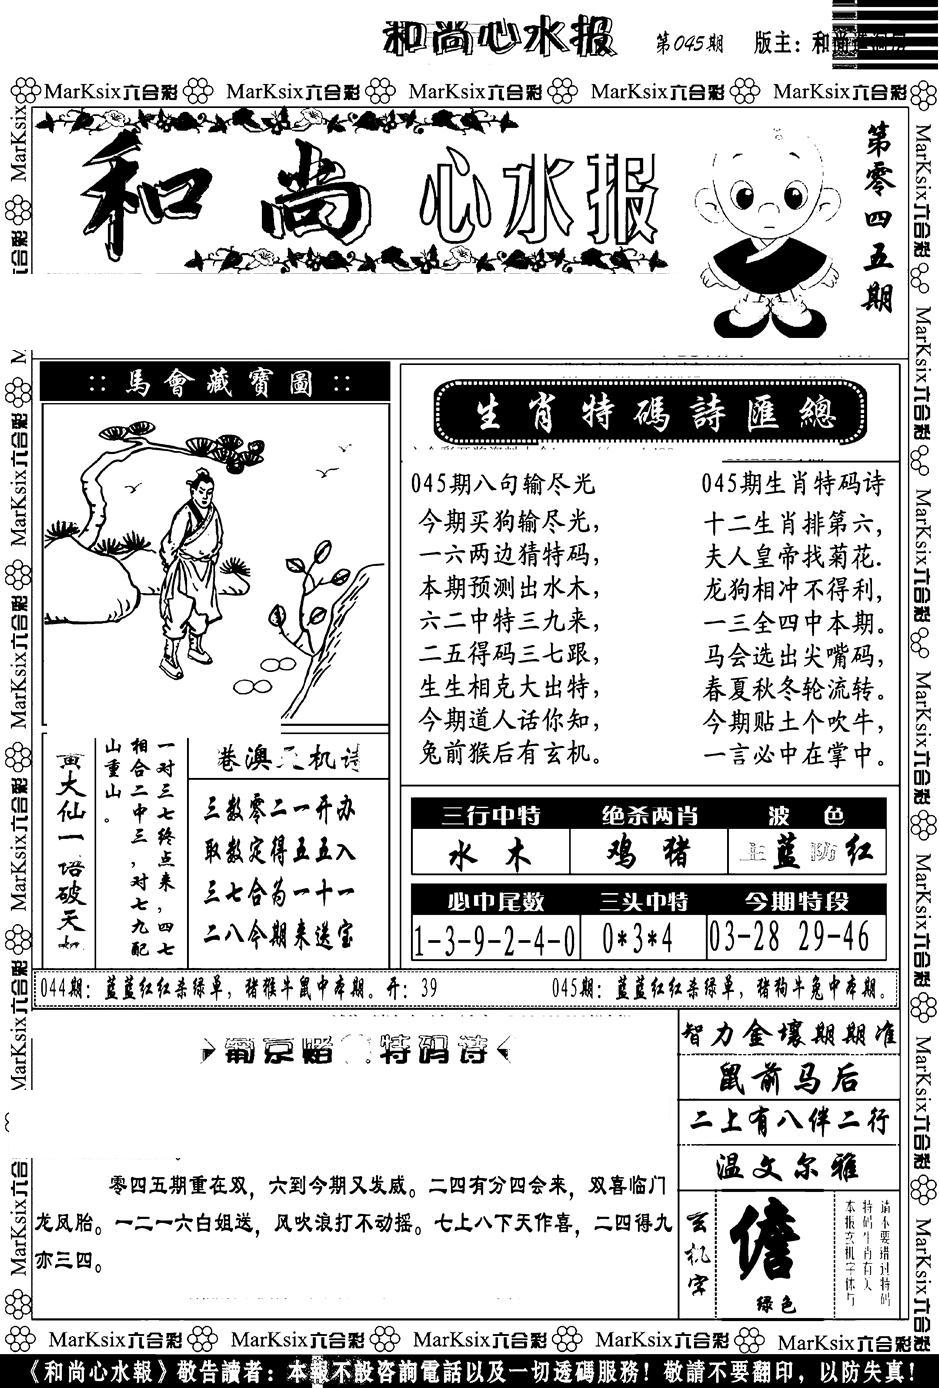 和尚心水报 第045期 版主：和尚
MarKsix六合彩 MarKsix六合彩 MarKsix六合彩 MarKsix六合彩 MarKsix六合彩
和尚心水报
第零四五期
馬會藏寶圖
生肖特碼詩匯總
045期八句输尽光
今期买狗输尽光，
一六两边猜特码，
本期预测出水木，
六二中特三九来，
二五得码三七跟，
生生相克大出特，
今期道人话你知，
兔前猴后有玄机。
045期生肖特码诗
十二生肖排第六，
夫人皇帝找菊花.
龙狗相冲不得利，
一三全四中本期。
马会选出尖嘴码，
春夏秋冬轮流转。
今期贴土个吹牛，
一言必中在掌中。
黄大仙一语破天
一对三七终点来，四七
相合二中三，对七九配
山重山。
港澳天机诗
三数零二一开办
取数定得五五入
三七合为一十一
二八今期来送宝
三行中特 绝杀两肖 波 色
水 木 鸡 猪 主蓝防红
必中尾数 三头中特 今期特段
1-3-9-2-4-0 0*3*4 03-28 29-46
044期：蓝蓝红红杀绿单，猪猴牛鼠中本期。开：39 045期：蓝蓝红红杀绿单，猪狗牛兔中本期。
葡京赌 特码诗
零四五期重在双，六到今期又发威。二四有分四会来，双喜临门
龙凤胎。一二一六白姐送，风吹浪打不动摇。七上八下天作喜，二四得九
亦三四。
智力金壤期期准
鼠前马后
二上有八伴二行
温文尔雅
玄机字
儋
绿色
请不要错过特码
特码生肖有关
本报玄机字体与
MarKsix六合彩 MarKsix六合彩 MarKsix六合彩 MarKsix六合彩 MarKsix六合彩
《和尚心水報》敬告讀者：本報不設咨詢電話以及一切透碼服務！敬請不要翻印，以防失真！